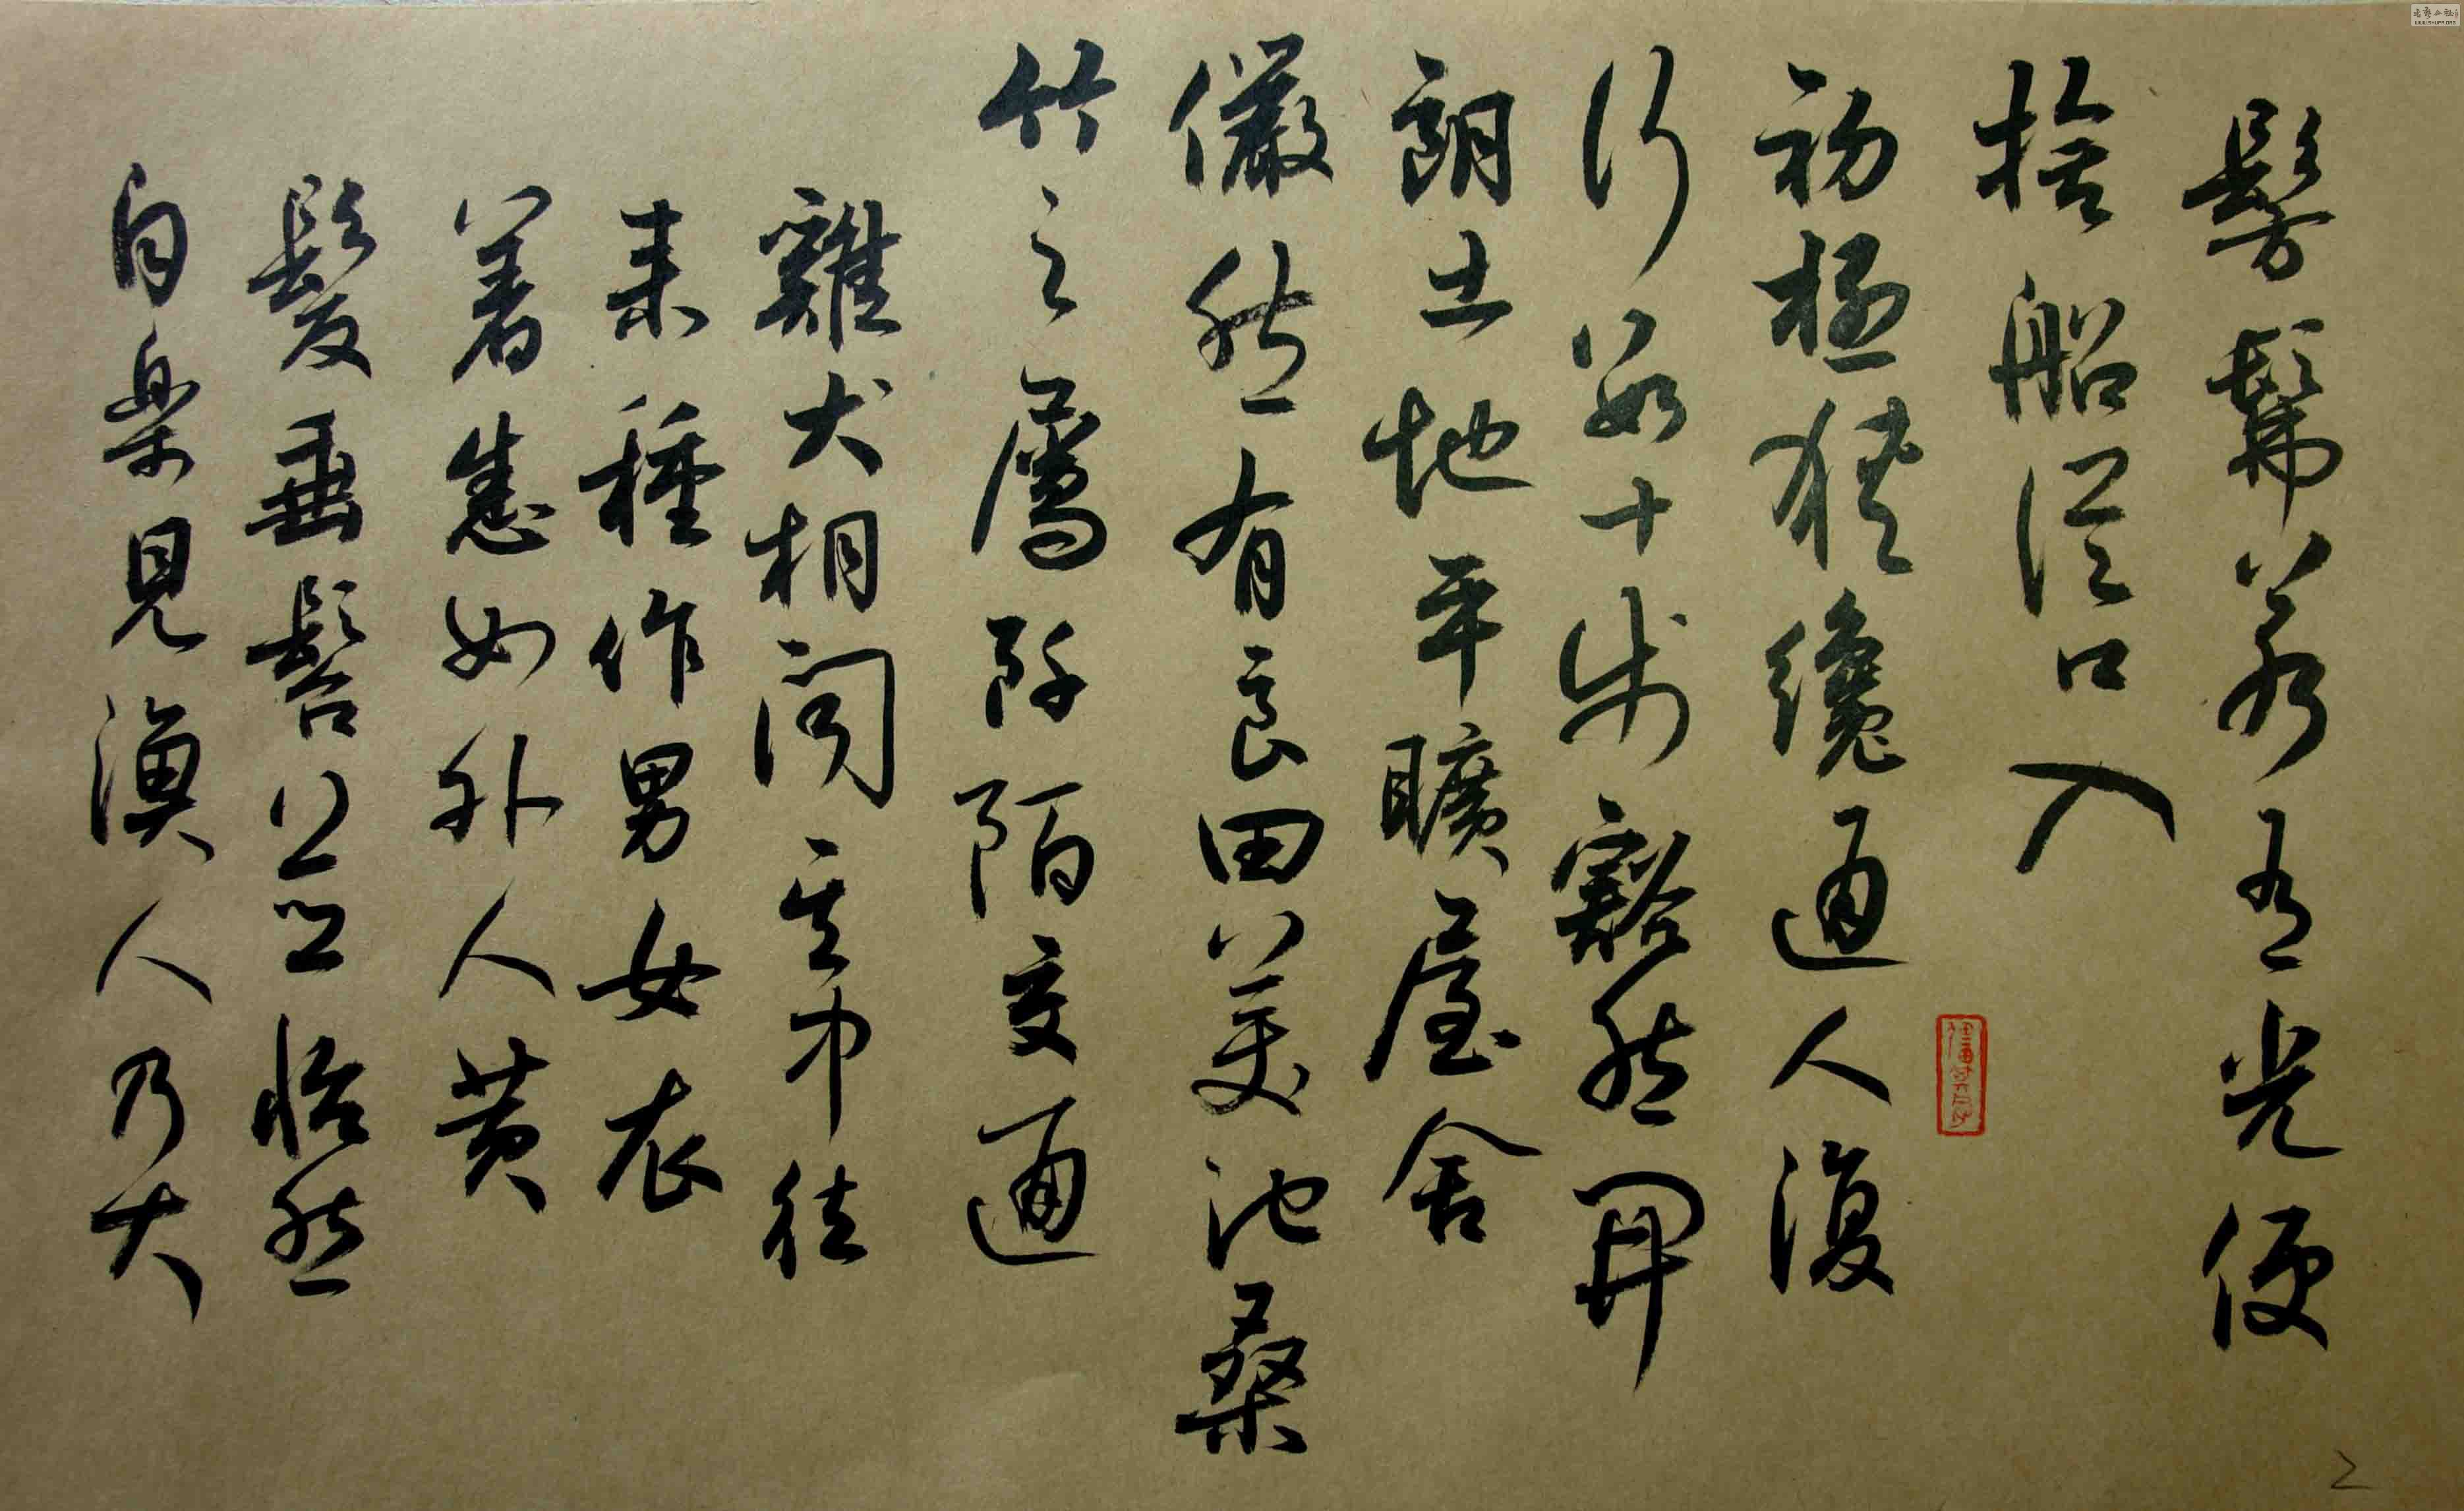 髣髴若有光便
捨船從口入
初極狹纔通人復
行數十步豁然開
朗土地平曠屋舍
儼然有良田美池桑
竹之屬阡陌交通
雞犬相聞其中往
来種作男女衣
著悉如外人黄
髮垂髫並怡然
自樂見漁人乃大
2